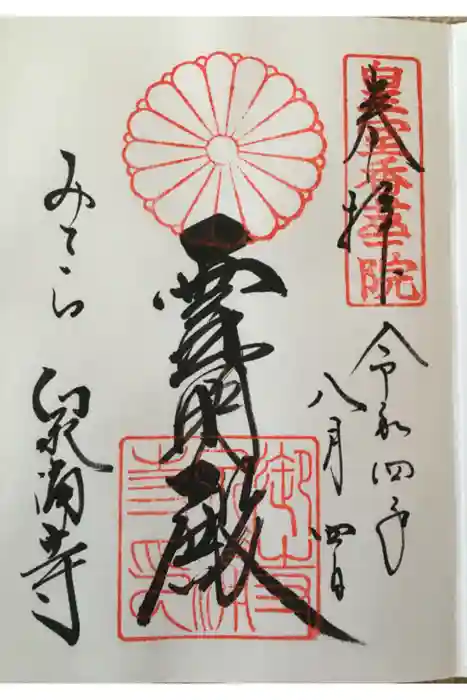 皇室香華院
奉拝
令和四年
八月四日
霊明殿
みてら 泉涌寺